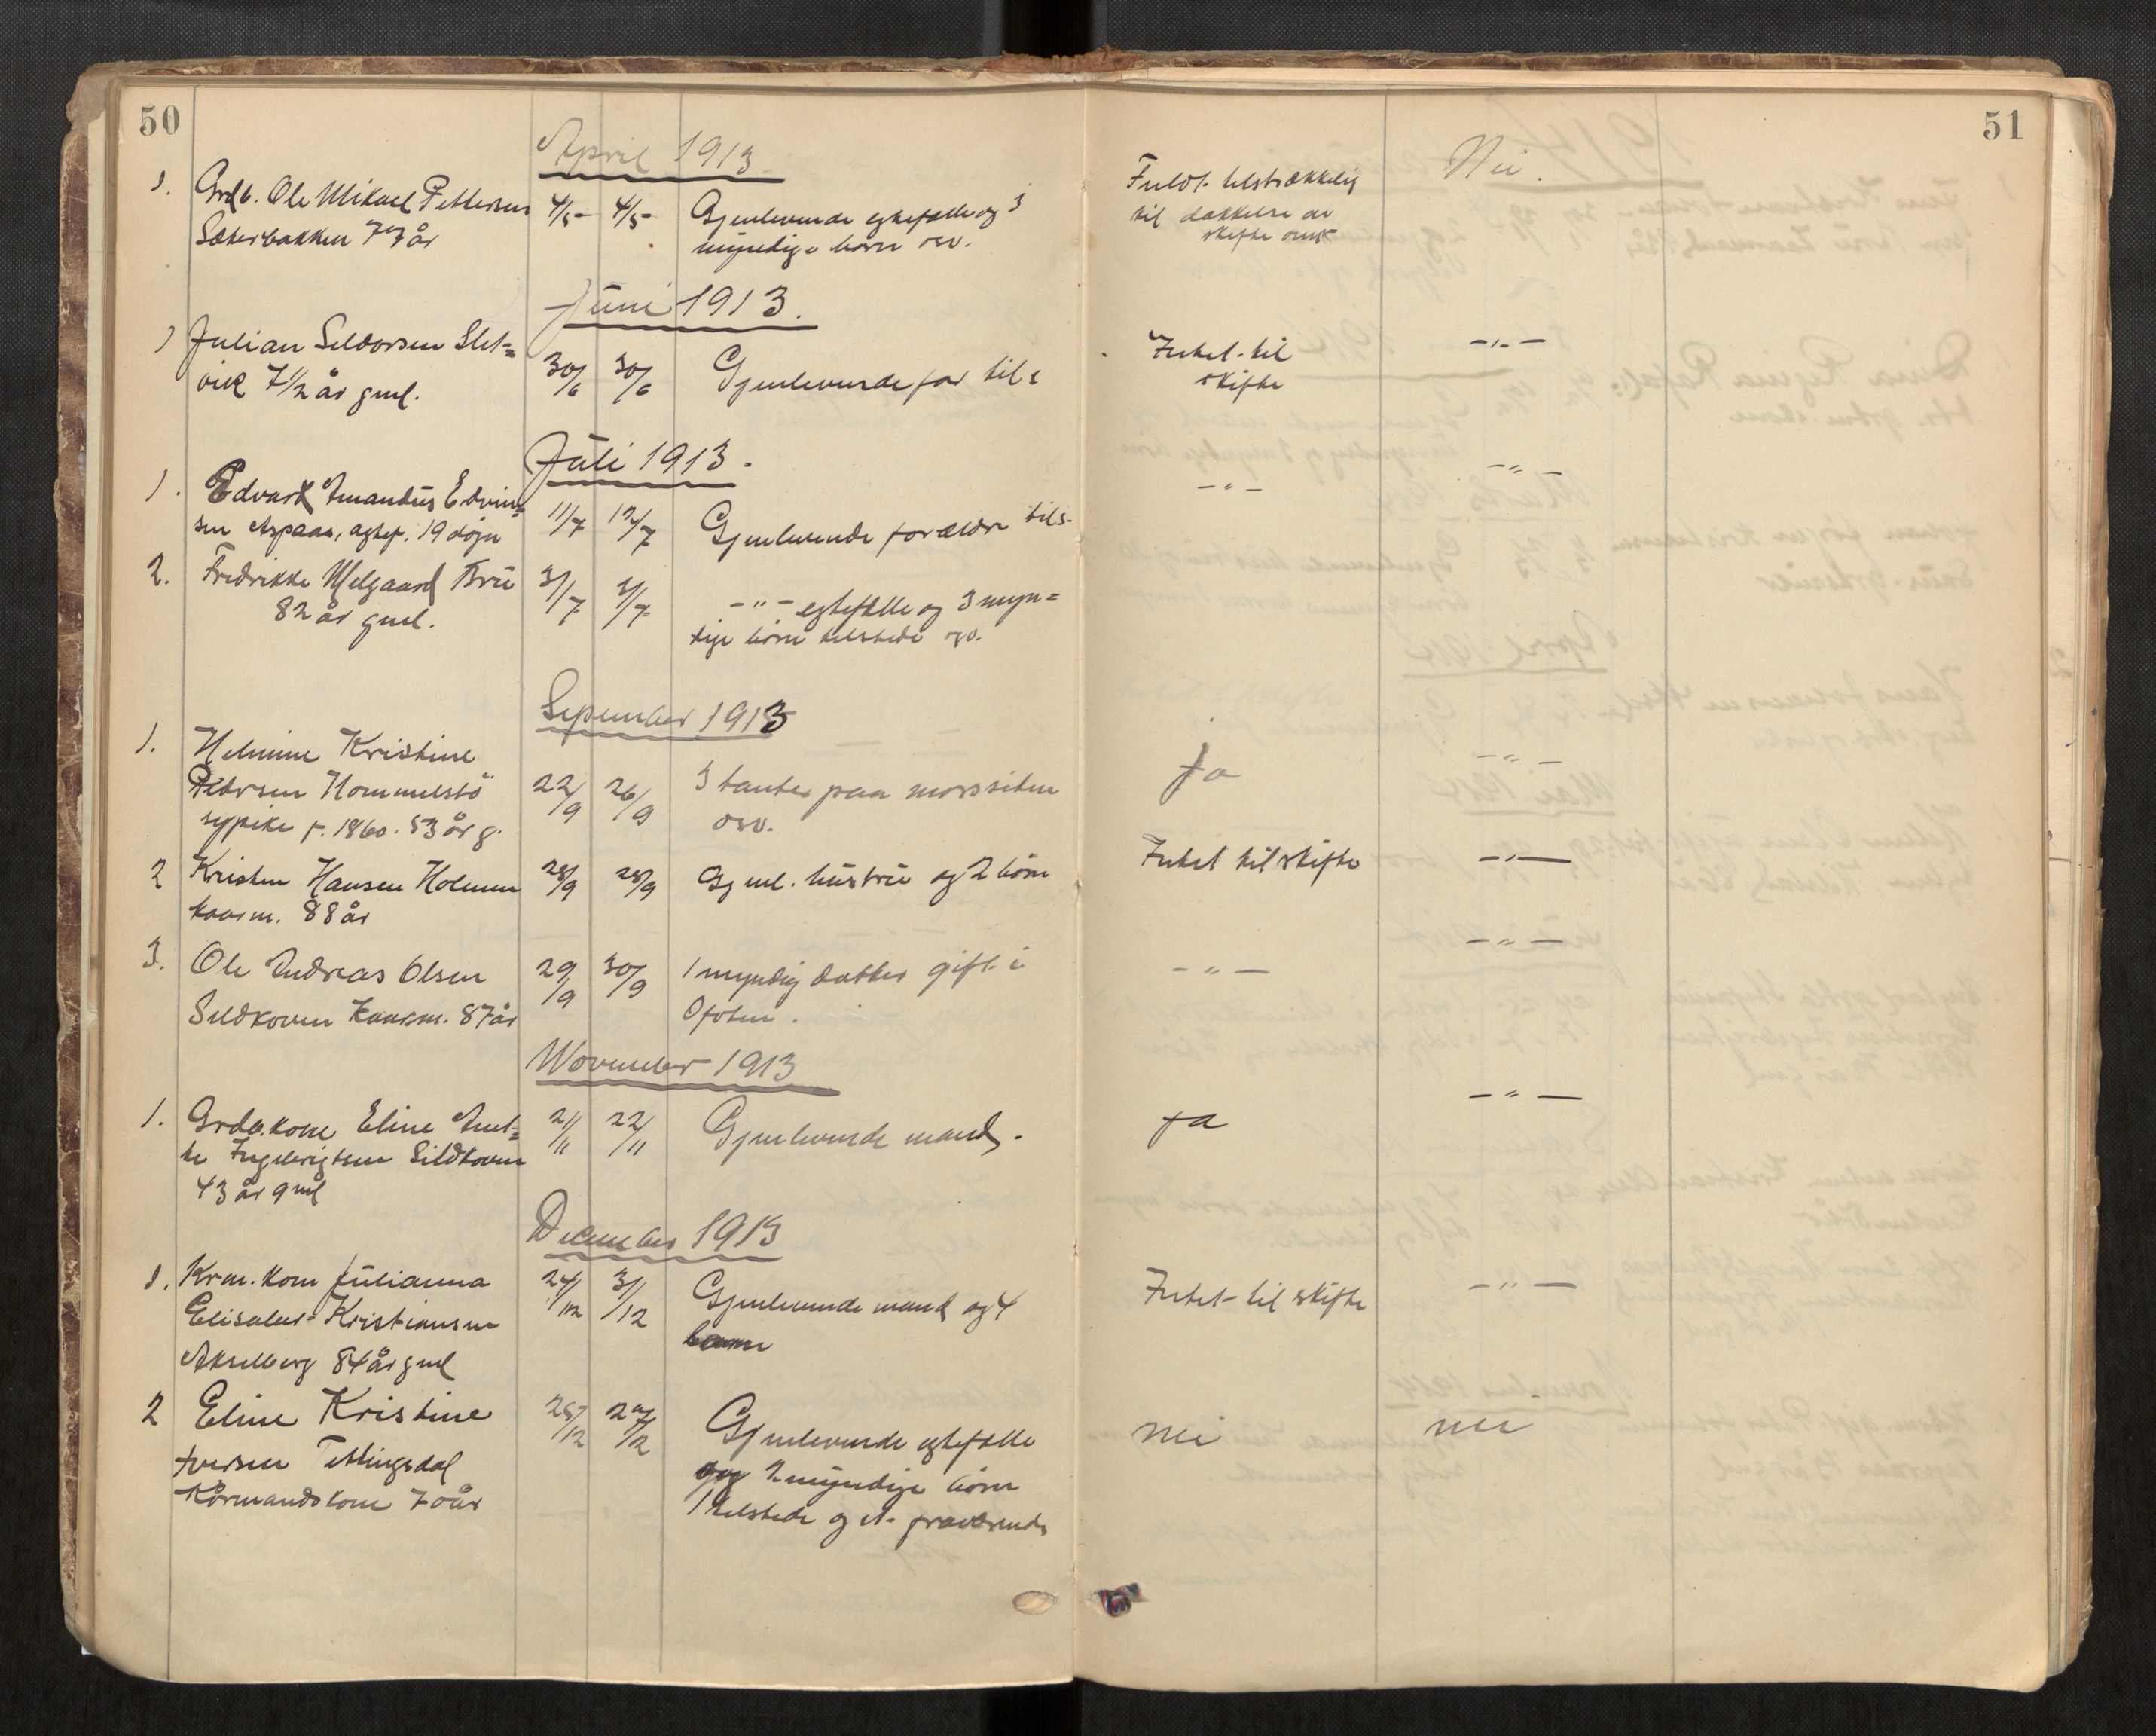 50
51
April 1913
1. Grdb. Ole Mikael Pettersen 4/5 4/5 Gjenlevende egtefælle og 3 Fuldt tilstrækkelig Nei.
Sæterbakken 77 år myndige børn osv. til dækkelse av
skifte omk
Juni 1913.
1 Julian Seldorsen Slet= 30/6 30/6 Gjenlevende far tils Intet til -"-
vik 7 1/2 år gml. skifte
Juli 1913.
1. Edvark Amandus Edvin= 11/7 12/7 Gjenlevende forældre tils- -"- -"-
sen Aspaas, ægtef. 19 døgn
2. Fredrikke Melgaard Bru -"- egtefælle og 3 myn=
82 år gml. dige børn tilstede osv.
September 1913
1. Helmine Kristine Ja -"-
Petersen Hommelstø 22/9 26/9 3 tanter paa morssiden
sypike f. 1860. 53 år g. osv.
2 Kristen Hansen Holmen 28/9 28/9 Gjenl. hustru og 2 børn Intet til skifte -"-
kaarm. 88 år
3. Ole Andreas Olsen 29/9 30/9 1 myndig datter gift i -"- -"-
Sildkoven Kaarm. 87 år Ofoten.
November 1913
1. Grdb.kone Eline Anet= 21/11 22/11 Gjenlevende mand. Ja -"-
te Ingebrigtsen Sildkoven
43 år gml
December 1913
1. Krm. kone Julianna 24/12 31/12 Gjenlevende mand og 4 Intet til skifte -"-
Elisabet Kristiansen børn
Akselberg 84 år gml
2 Eline Kristine Gjenlevende egtefælle nei nei
Iversen Tettingsdal og 2 myndige børn
Kårmandskone 70 år 1 tilstede og et fraværende